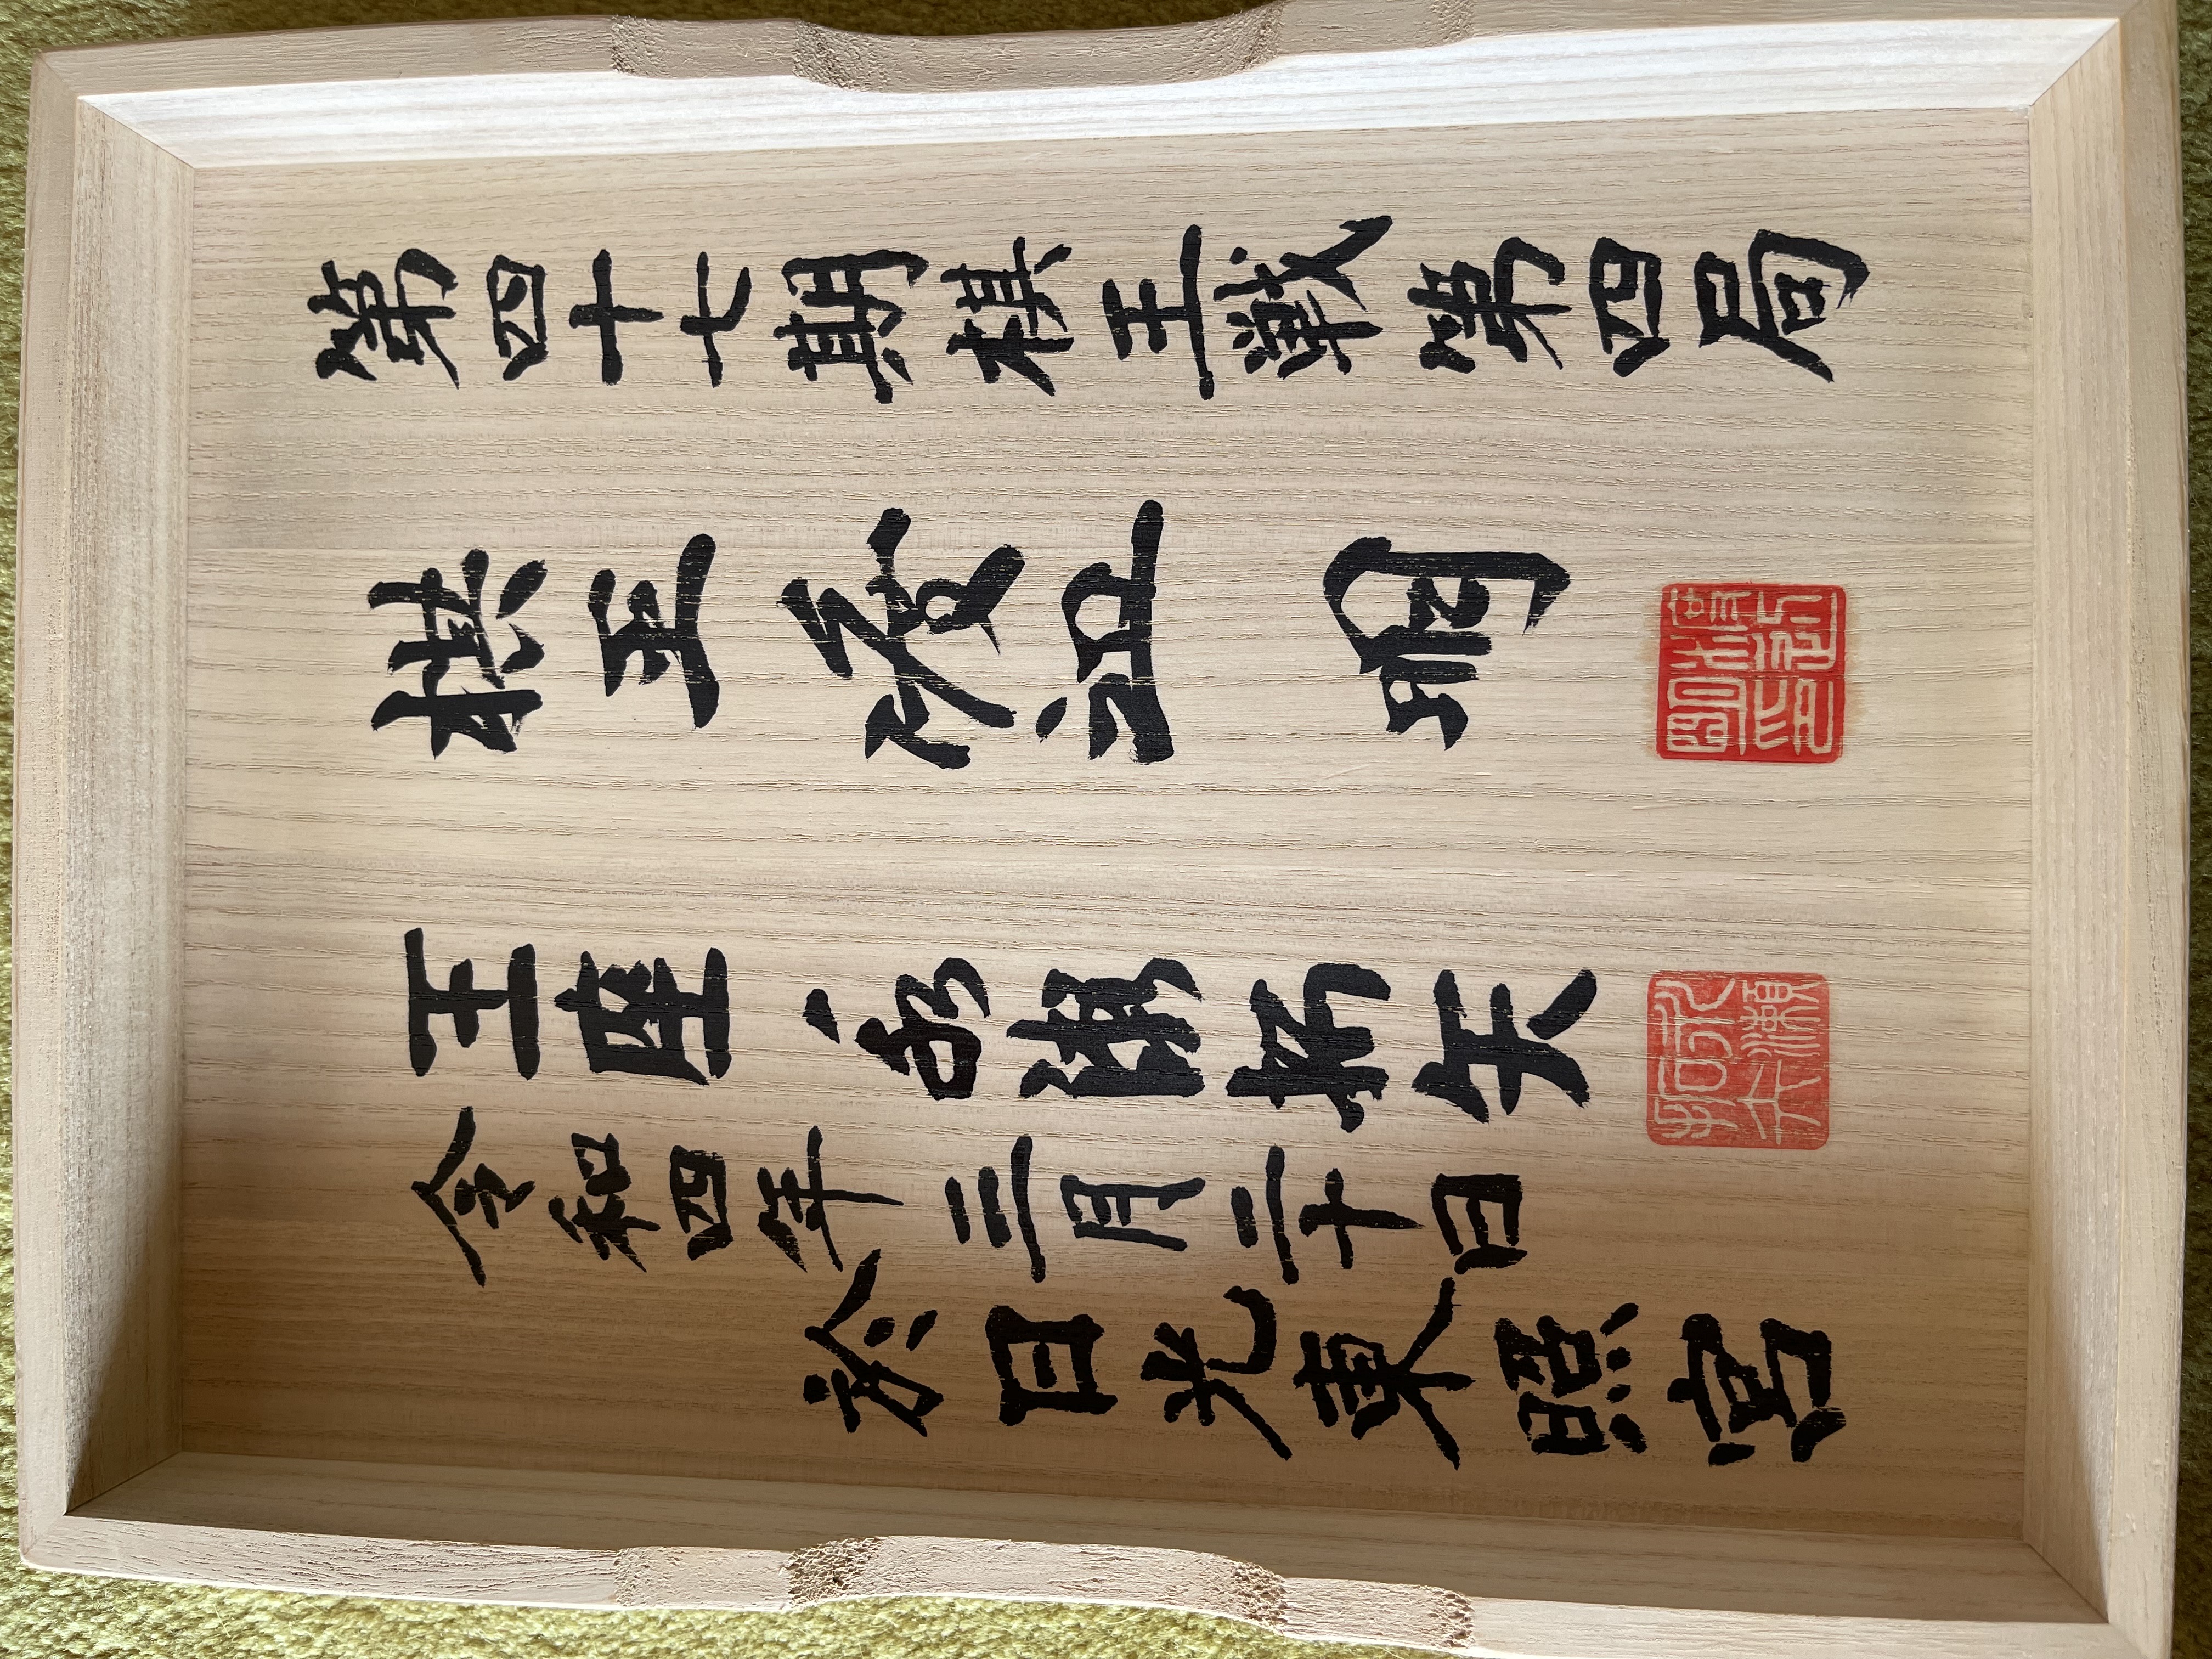 第四十七期棋王戦第四局
棋王 渡辺 明
王座 永瀬拓矢
永瀬
拓矢
令和四年三月二十日
於日光東照宮